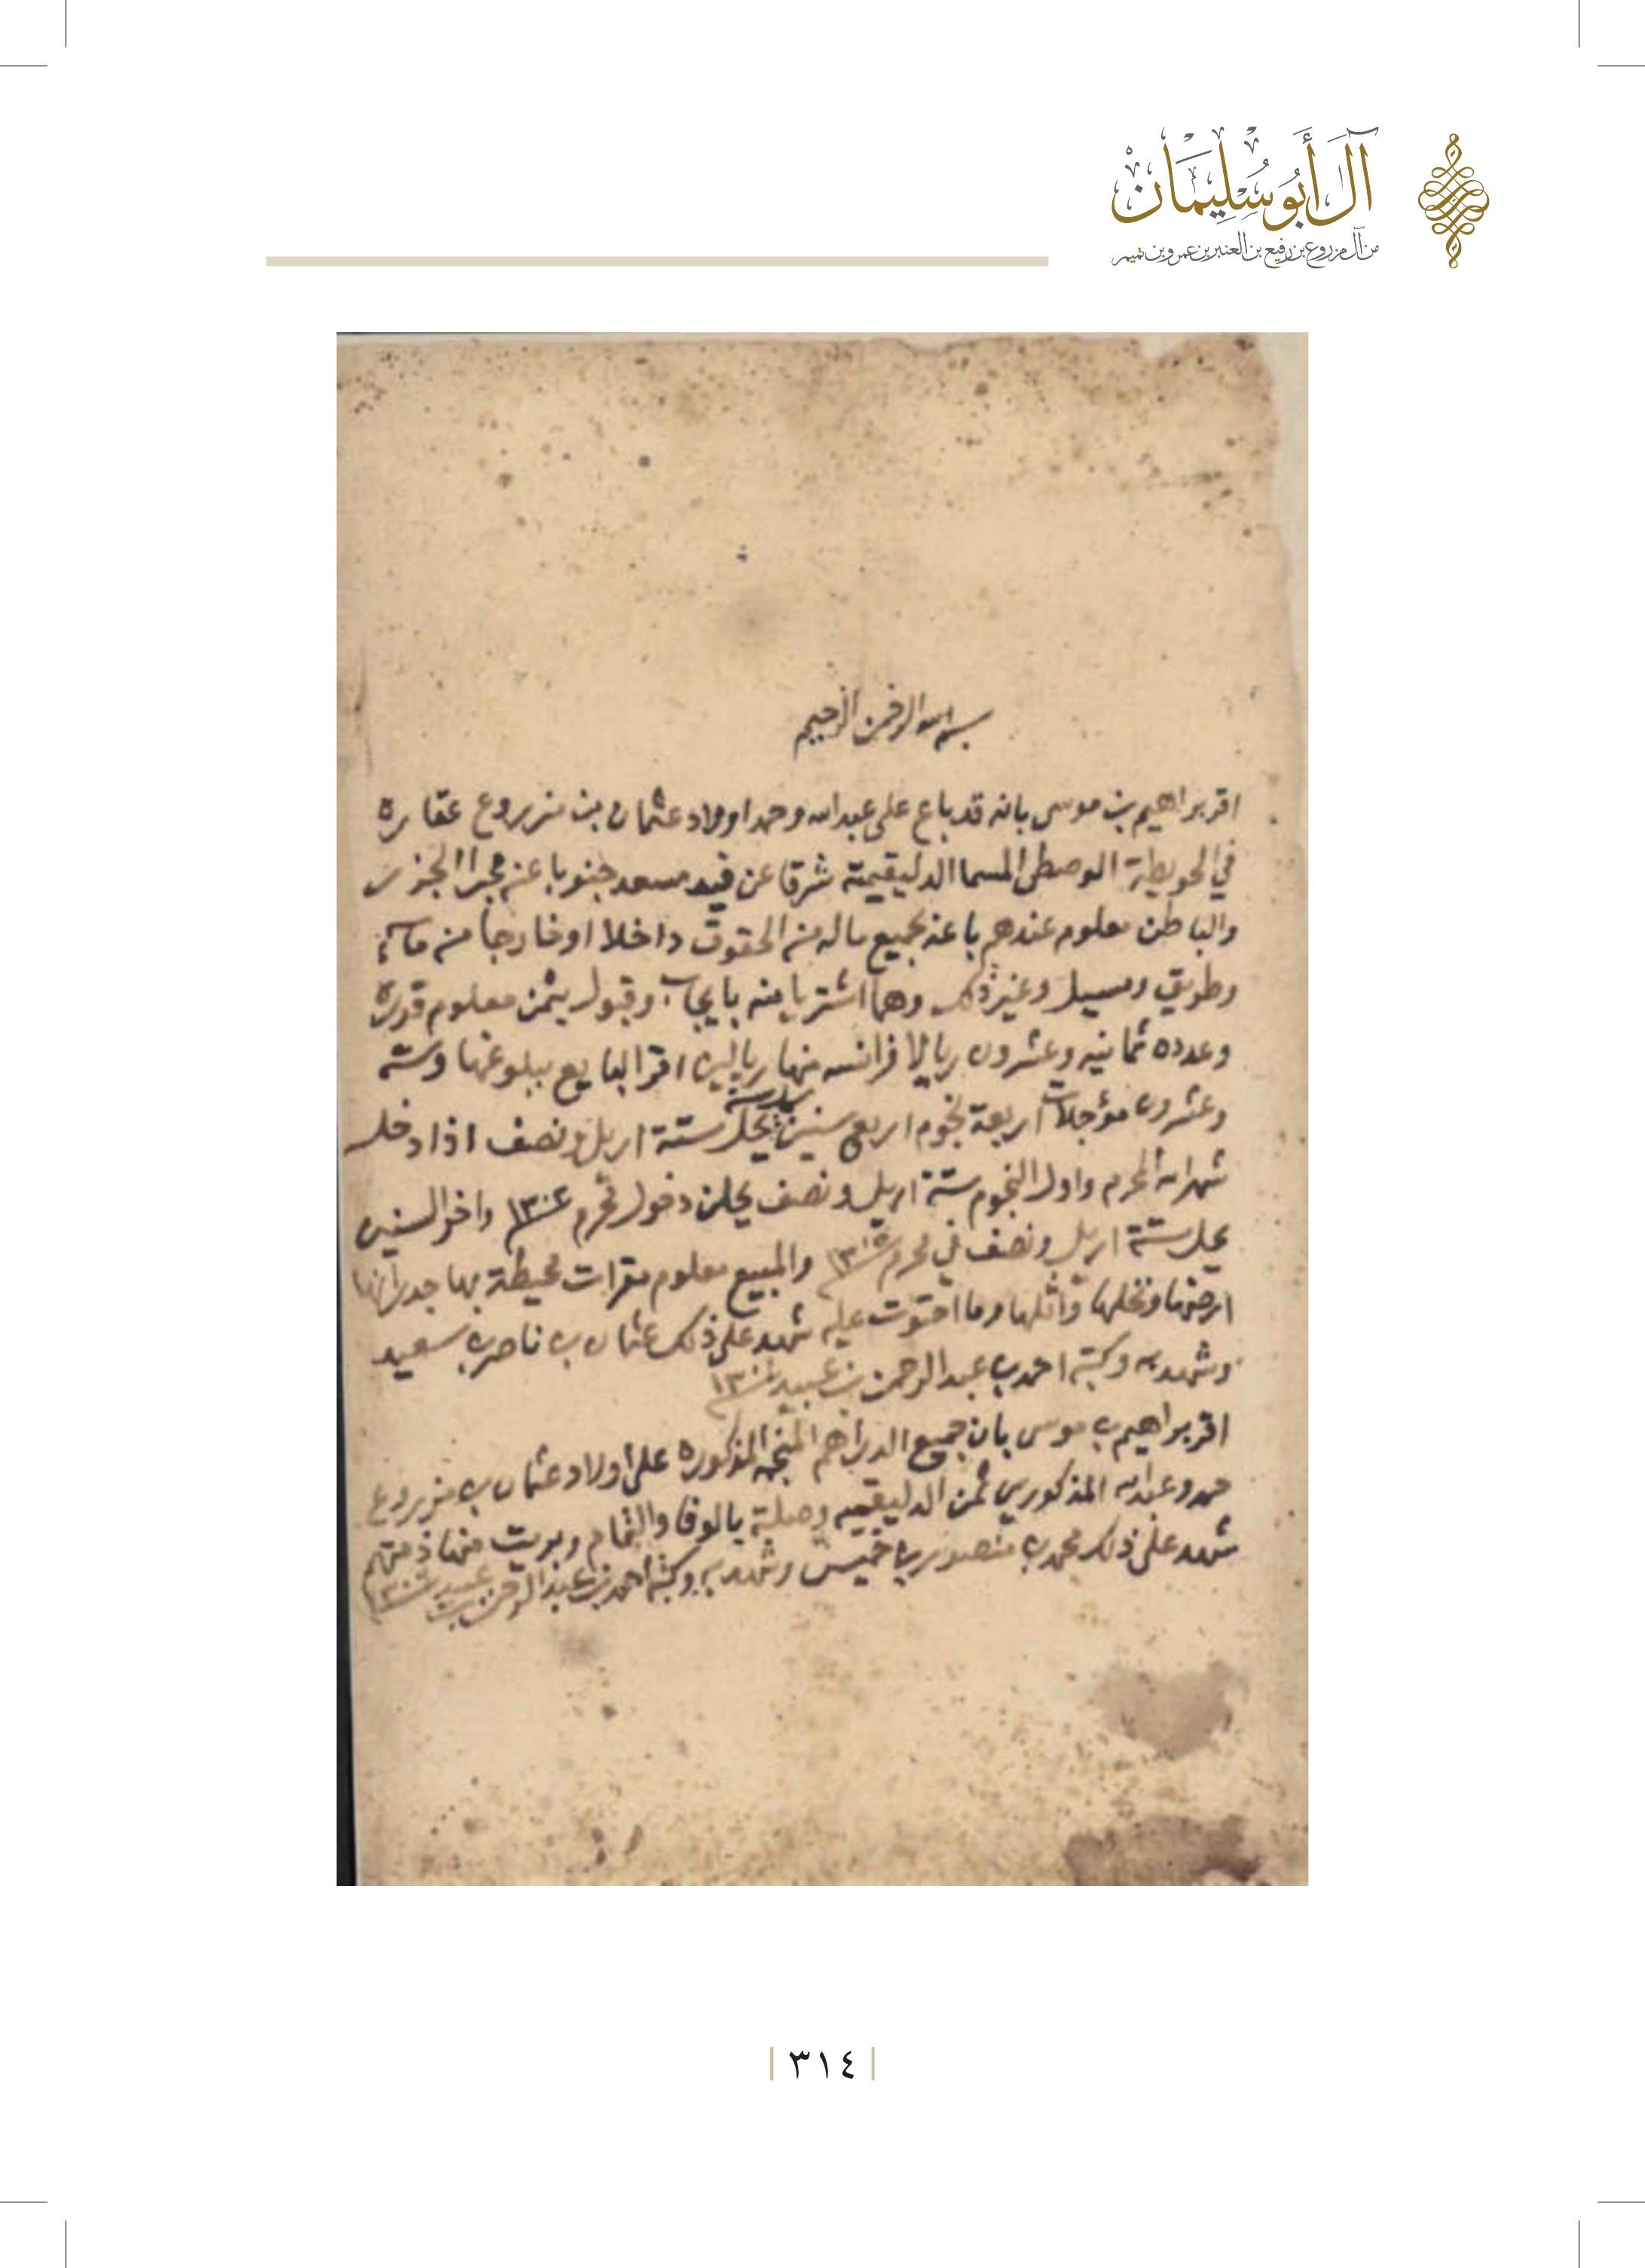 آل أَبُو سُلِيمَانْ
من آل مزروع بن رفيع بن العنبر بن عمرو بن تميم
بسم الله الرحمن الرحيم
اقر براهيم بن موسى بانه قد باع على عبدالله وحمد اولاد عثمان بن مزروع عقاره
في الحويطة الوصطى المسما الدليقيمة شرقا عن فيد مسعد جنوبا عن مجرا
والباطن معلوم عندهم باعه بجميع ماله من الحقوق داخلا او خارجا من مآء
وطريق ومسيل وغير ذلك وهما اشتريا منه بايجاب وقبول بثمن معلوم قدره
وعدده ثمانيه وعشرون ريالا فرانسه منها ريالين اقر البايع ببلوغها وسته
وعشرون مؤجلات اربعة نجوم اربع سنين يحل ستة اريل ونصف اذا دخل
شهر الله المحرم واول النجوم ستة اريل ونصف يحلن دخول محرم واخر السنين
يحل ستة اريل ونصف في محرم والمبيع معلوم محيطة بها جدرانها
ارضها ونخلها واثلها وما احتوت عليه شهد على ذلك عثمان بن ناصر بن سعيد
وشهد به وكتبه احمد بن عبد الرحمن بن عبيد
اقر براهيم بن موسى بان جميع الدراهم المنجمه المذكوره على اولاد عثمان بن مزروع
حمد وعبدالله المذكورين ثمن الدليقيمه وصلية بالوفا والتمام وبريت منها ذمتهم
شهد على ذلك محمد بن منصور بن خميس وشهد به وكتبه احمد بن عبد الرحمن بن عبيد
٣١٤